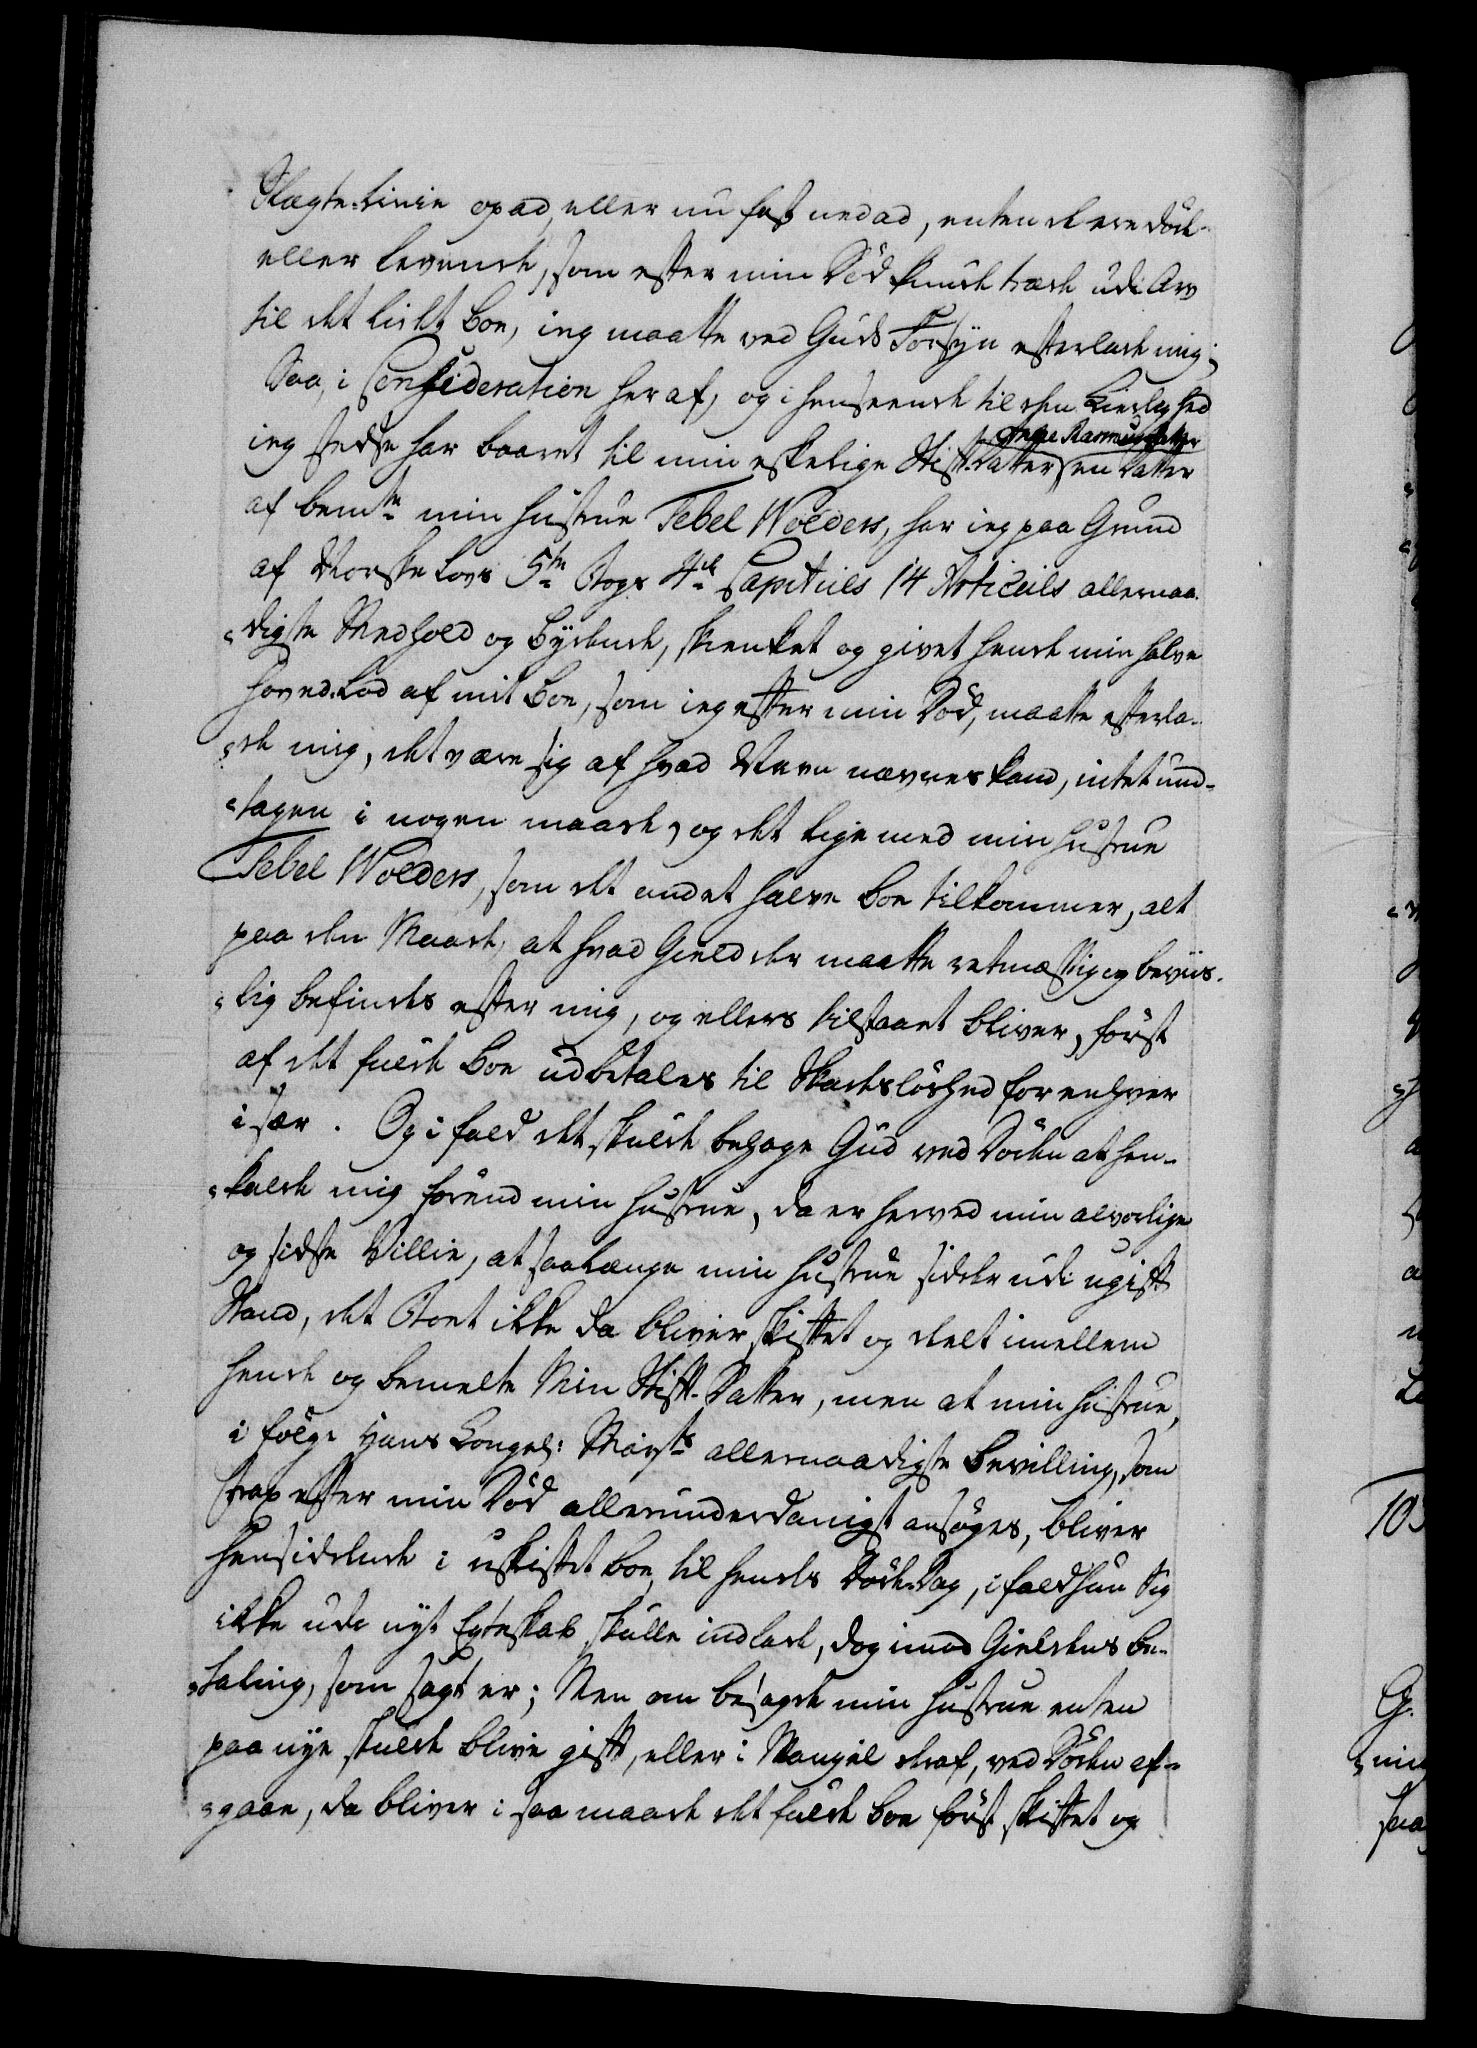 Slægte-Linie opad, eller nu fast nedad, enten de ere døde
eller levende, som efter min Død kunde træde udi Arv
til det lidet Boe, ieg maatte ved Guds Forsyn efterlade mig;
Saa, i Consideration heraf, og i henseende til den Kierlighed
ieg stedse har baaret til min eskelige Stif-Datter, en Datter
af bemte min Hustrue Tebel Wolders, har ieg paa Grund
af Norske Lovs 5te Bogs 4de Capituls 14 Articuls allernaa-
digste Medhold og Bydende, skienket og givet hende min halve
Hoved-Lod af mit Boe, som ieg efter min Død, maatte efterla-
de mig, det være sig af hvad Navn nævnes kand, intet und-
tagen i nogen maade, og det lige med min Hustrue
Tebel Wolders, som det andet halve Boe tilkommer, alt
paa den Maade, at hvad Gield der maatte retmæssig og beviis-
lig befindes efter mig, og ellers tilstaaet bliver, først
af det fulde Boe udbetales til Skadesløshed for enhver
især. Og ifald det skulde behage Gud ved Døden at hen-
kalde mig forend min Hustrue, da er herved min alvorlige
og sidste Villie, at saalænge min Hustrue sidder udi ugift
Stand, det Boet ikke da bliver skiftet og deelt imellem
hende og bemelte Min Stif-Datter, men at min Hustrue,
i følge Hans Kongel: Mayts allernaadigste Bevilling, som
strax efter min Død allerunderdanigst ansøges, bliver
hensiddende i uskiftet Boe, til hendes Døde-Dag, ifald hun sig
ikke udi nyt Egteskab skulle indlade, dog imod Gieldens be-
taling, som sagt er; Men om besagde min Hustrue enten
paa nye skulde blive gift, eller i Mangel deraf, ved Døden af-
gaae, da bliver i saa maade det fulde Boe først skiftet og